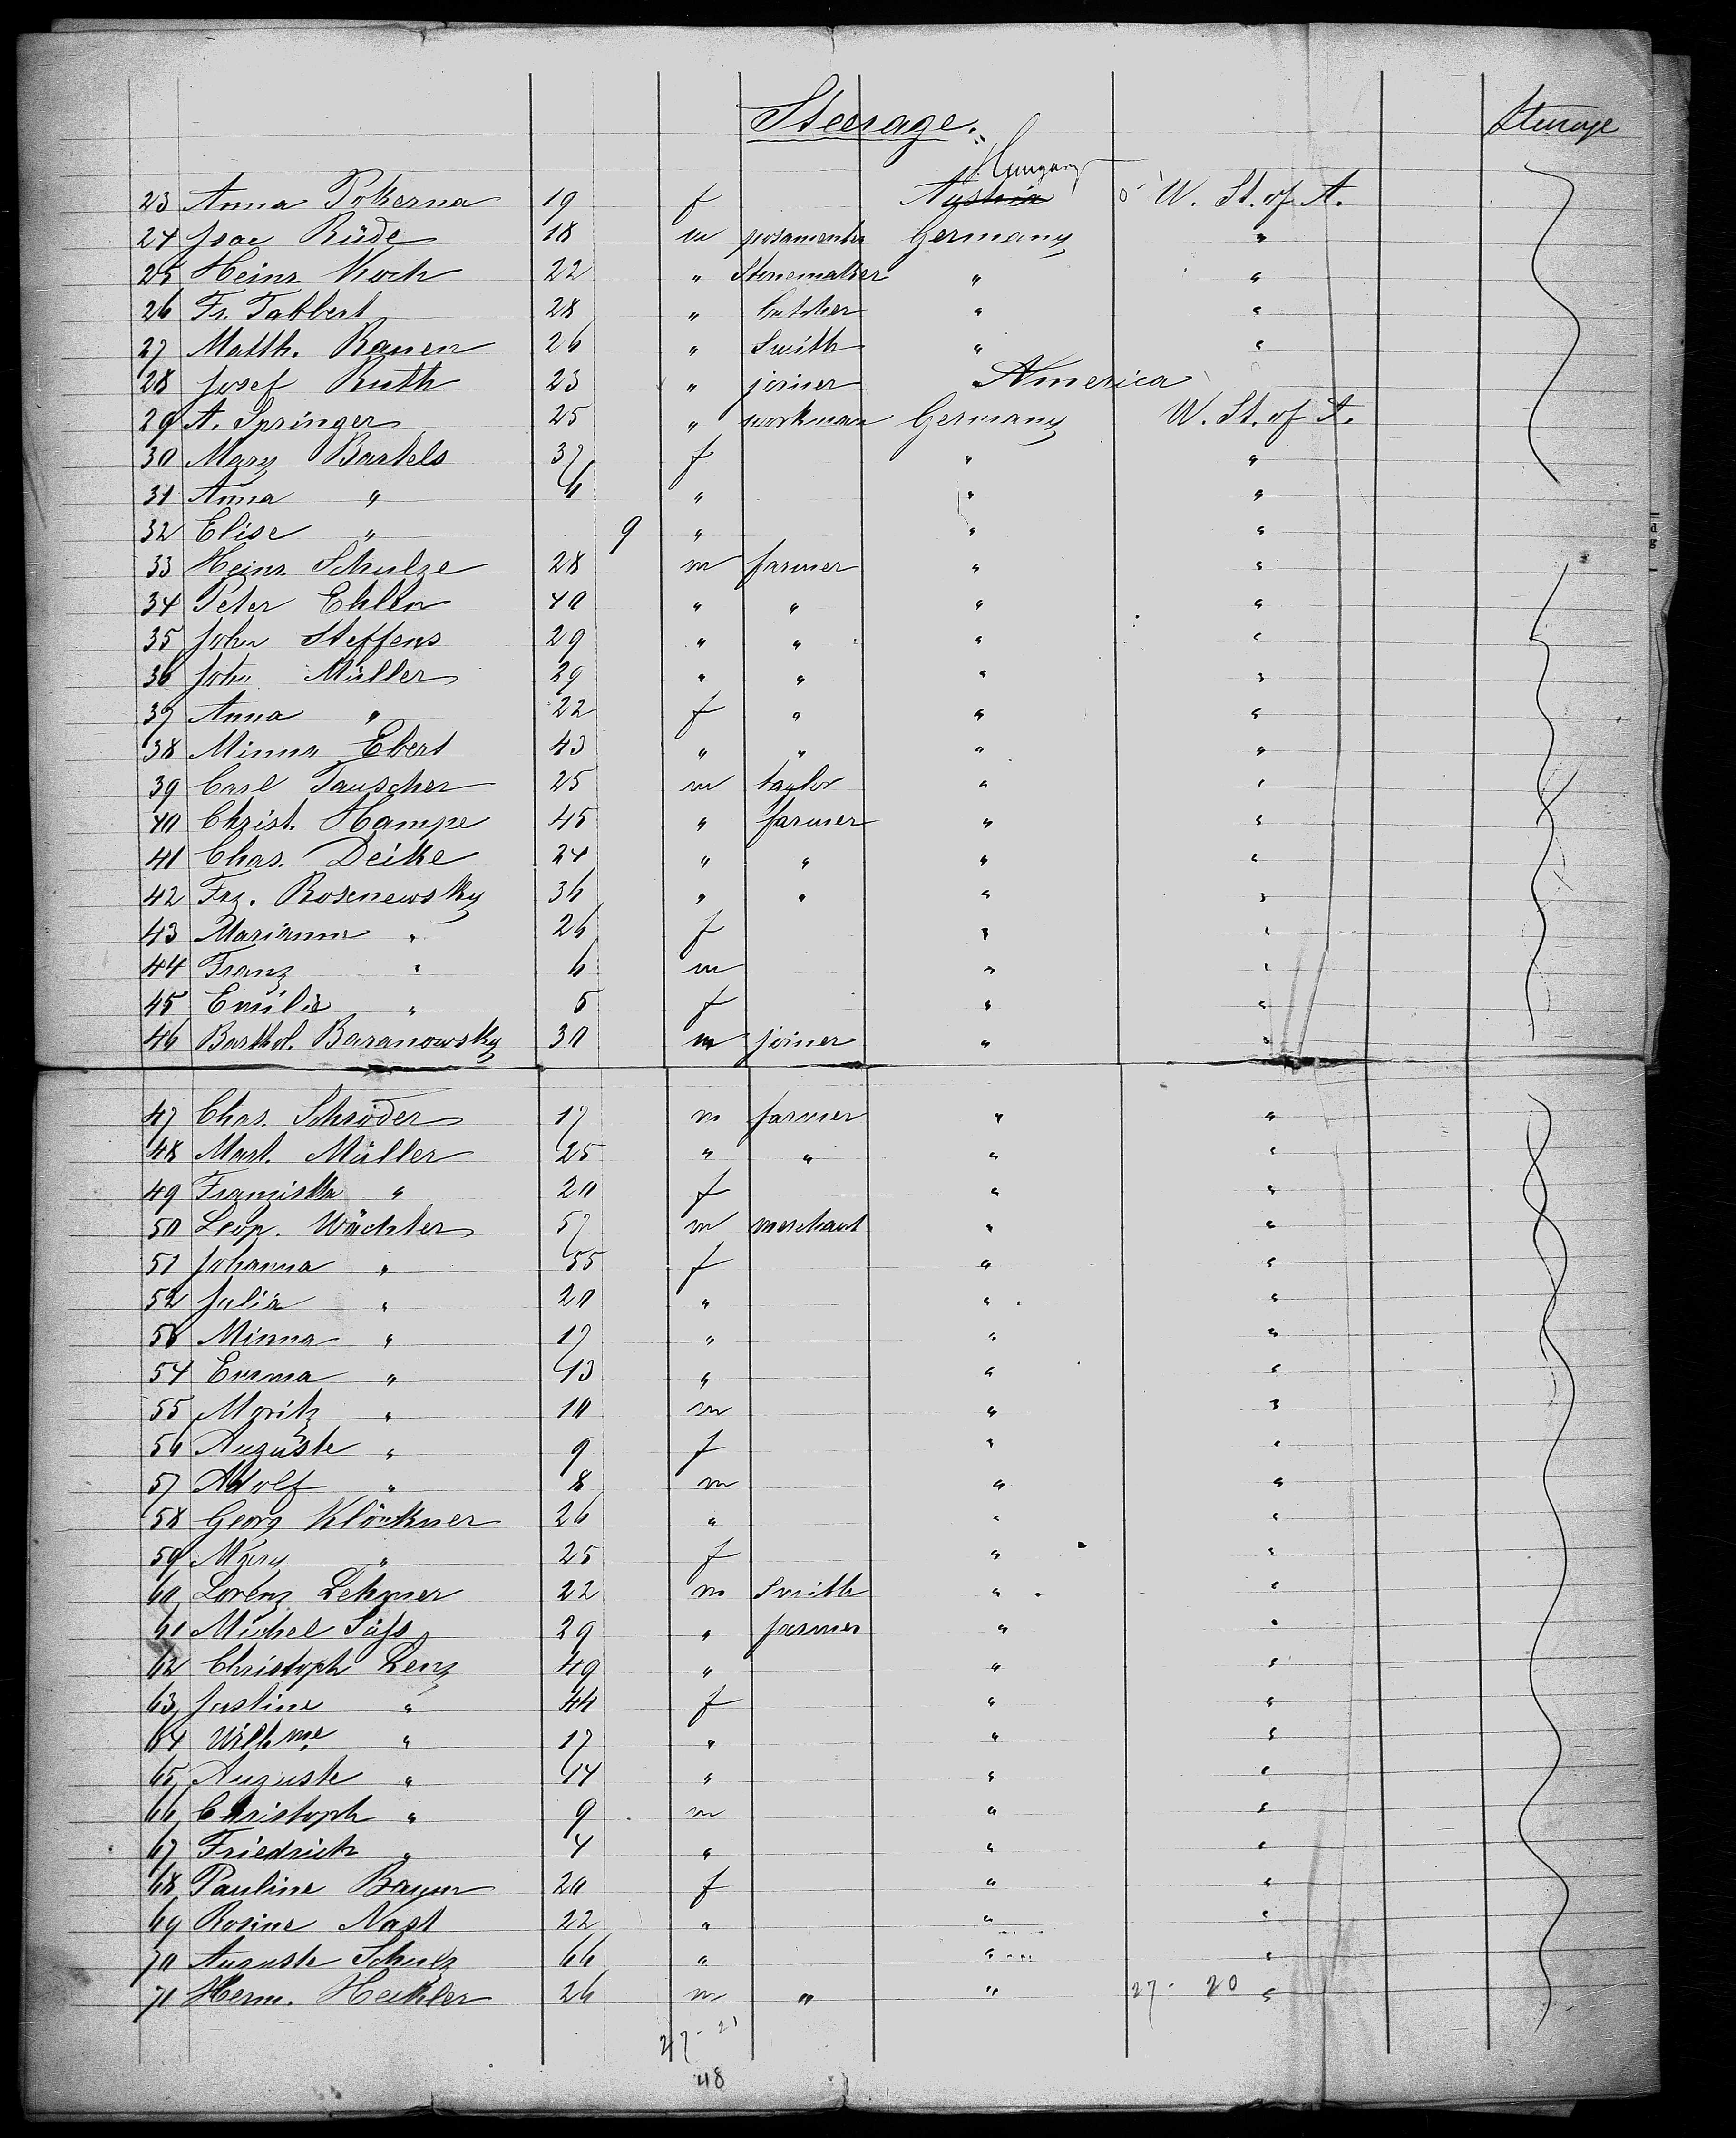 Steerage.
Steerage
Hungary
23 Anna Pokerna 19 f Austria U. St. of A.
24 Isac Rüde 18 m posamentier Germany "
25 Heinr. Koch 22 " Stonemaker " "
26 Fr. Tabbert 28 " butcher " "
27 Matth. Bauen 26 " Smith " "
28 Josef Ruth 23 " joiner " America
29 A. Springer 25 " workman Germany U. St. of A.
30 Mary Bartels 37 f " "
31 Anna " 6 " " "
32 Elise " 9 " " "
33 Heinr. Schulze 28 m farmer " "
34 Peter Ehlen 40 " " " "
35 John Steffens 29 " " " "
36 John Müller 29 " " " "
37 Anna " 22 f " " "
38 Minna Ebert 43 " " " "
39 Carl Tauscher 25 m taylor " "
40 Christ. Hampe 45 " farmer " "
41 Chas. Deike 24 " " " "
42 Frz. Rosenewsky 36 " " " "
43 Marianna " 26 f " "
44 Franz " 6 m " "
45 Emilie " 5 f " "
46 Barthol. Baranowsky 30 m joiner " "
47 Chas. Schröder 17 m farmer " "
48 Mart. Müller 25 " " " "
49 Franziska " 20 f " "
50 Leop. Wächter 57 m merchant " "
51 Johanna " 55 f " "
52 Julia " 20 " " "
53 Minna " 17 " " "
54 Emma " 13 " " "
55 Moritz " 10 m " "
56 Auguste " 9 f " "
57 Adolf " 8 m " "
58 Georg Klöckner 26 " " "
59 Mary " 25 f " "
60 Lorenz Lehner 22 m Smith " "
61 Michel Süss 29 " farmer " "
62 Christoph Lenz 49 " " "
63 Justine " 44 f " "
64 Wilhme " 17 " " "
65 Auguste " 14 " " "
66 Christoph " 9 m " "
67 Friedrich " 4 " " "
68 Pauline Bayer 20 f " "
69 Rosine Nast 22 " " "
70 Auguste Schulz 66 " " "
71 Herm. Heckler 26 m " " 27 - 20 "
27 - 21
48